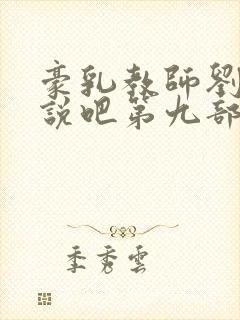 豪乳教師劉
說吧第九部
季秀雲